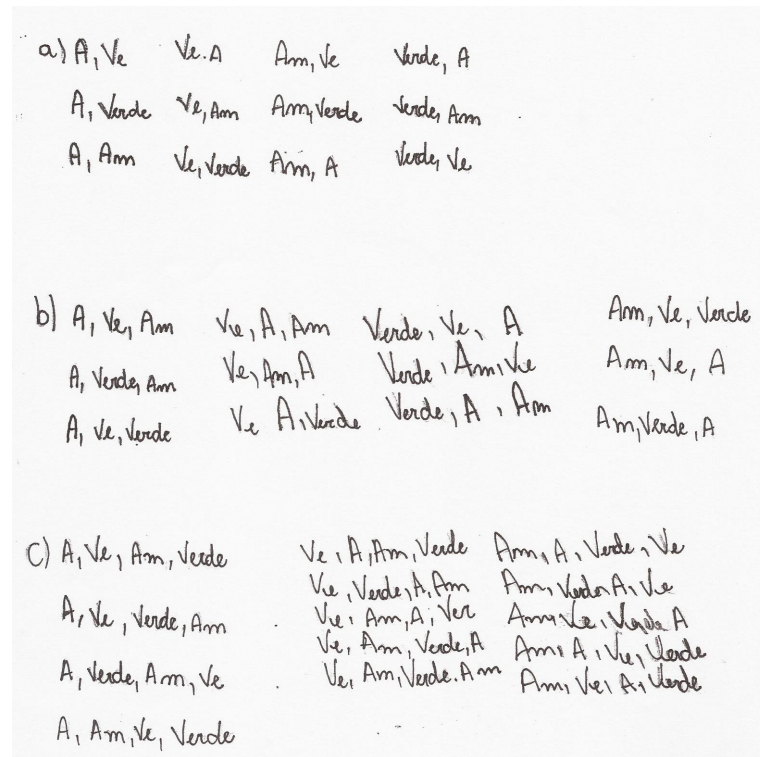 a) A, Ve Ve. A Am, Ve Verde, A
A, Verde Ve, Am Am, Verde Verde, Am
A, Am Ve, Verde Am, A Verde, Ve
b) A, Ve, Am Ve, A, Am Verde, Ve, A Am, Ve, Verde
A, Verde, Am Ve, Am, A Verde, Am, Ve Am, Ve, A
A, Ve, Verde Ve A, Verde Verde, A, Am Am, Verde, A
c) A, Ve, Am, Verde Ve, A, Am, Verde Am, A, Verde, Ve
Ve, Verde, A, Am Am, Verde A, Ve
A, Ve, Verde, Am Ve, Am, A, Ver Am, Ve, Verde A
Ve, Am, Verde, A Am, A, Ve, Verde
A, Verde, Am, Ve Ve, Am, Verde. Am Am, Ve, A, Verde
A, Am, Ve, Verde